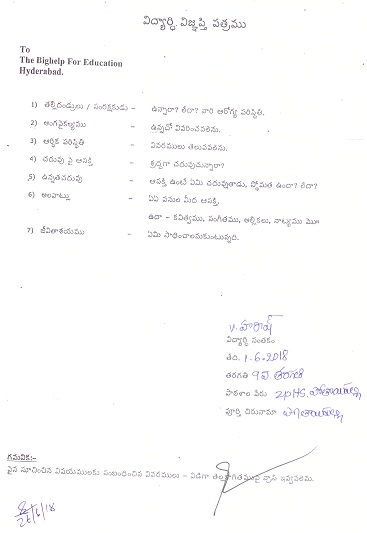 విద్యార్థి విజ్ఞప్తి పత్రము
To
The Bighelp For Education
Hyderabad.
1) తల్లిదండ్రులు / సంరక్షకుడు - ఉన్నారా? లేదా? వారి ఆరోగ్య పరిస్థితి.
2) అంగవైకల్యము - ఉన్నచో వివరించవలెను.
3) ఆర్థిక పరిస్థితి - వివరములు తెలుపవలెను.
4) చదువు పై ఆసక్తి - శ్రద్ధగా చదువుచున్నారా?
5) ఉన్నతచదువు - ఆసక్తి ఉంటే ఏమి చదువుతాడు, స్థోమత ఉందా? లేదా?
6) అలవాట్లు - ఏఏ పనుల మీద ఆసక్తి,
ఉదా - కవిత్వము, సంగీతము, అల్లికలు, నాట్యము మొ
7) జీవితాశయము - ఏమి సాధించాలనుకుంటున్నది.
V. హారిష్
విద్యార్థి సంతకం
తేది. 1-6-2018
తరగతి 9వ తరగతి
పాఠశాల పేరు ZPHS.
పూర్తి చిరునామా
గమనిక:-
పైన సూచించిన విషయములకు సంబంధించిన వివరములు - విడిగా తెల్లకాగితముపై వ్రాసి ఇవ్వవలెను.
26/6/18